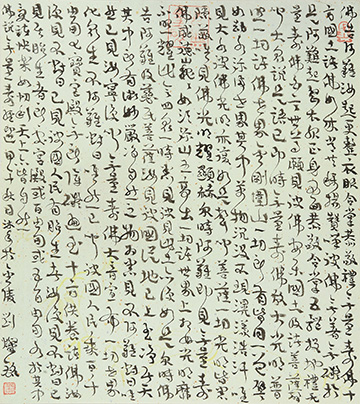 佛告阿難汝起更整衣服合掌恭敬禮無量壽佛十
方國土諸佛如來常共稱揚讚歎彼佛無著無礙於
是阿難起整衣服正身西向恭敬合掌五體投地禮無
量壽佛白言世尊願見彼佛安樂國土及諸菩薩聲聞
大眾說是語已即時無量壽佛放大光明普照一
切諸佛世界金剛圍山一切所有皆同一色譬
如劫水彌滿世界其中萬物沉沒不現滉瀁浩汗唯
見大水彼佛光明亦復如是聲聞菩薩一切光明皆悉
隱蔽唯見佛光明耀顯赫爾時阿難即見無量壽
佛威德巍巍如須彌山王高出一切諸世界上相好光明靡
不照耀此會四眾一時悉見彼見此土亦復如是爾時佛
告阿難及慈氏菩薩汝見彼國從地已上至淨居天
其中所有微妙嚴淨自然之物為悉見不阿難對曰唯
然已見汝寧復聞無量壽佛大音宣布一切世界
化眾生不阿難對曰唯然已聞彼國人民乘百千
由旬七寶宮殿無所障礙遍至十方供養諸佛汝
復見不對曰已見彼國人民有胎生者汝復見不對曰已
見其胎生者所處宮殿或百由旬或五百由旬各於其中
受諸快樂如忉利天上亦皆自然
無量壽經 劉